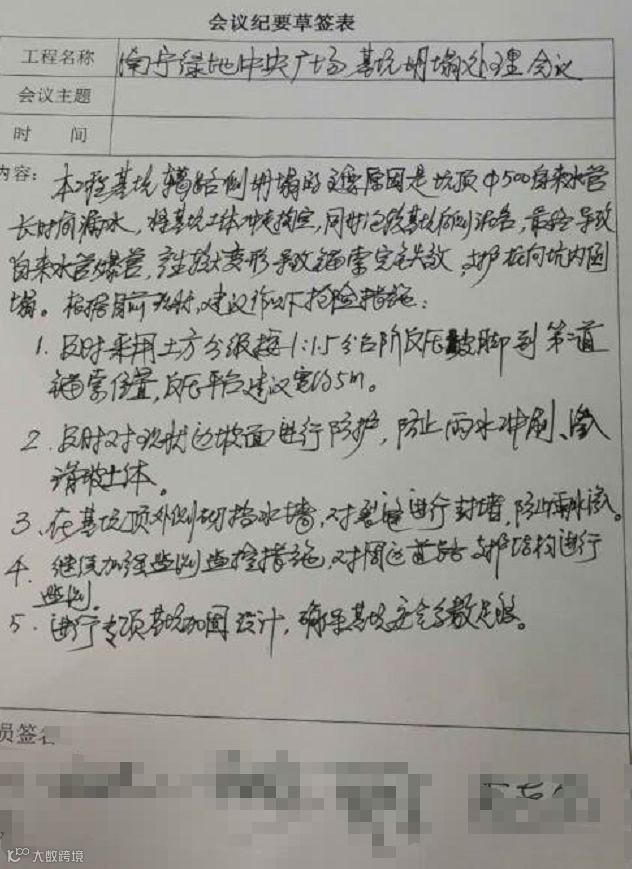 会议纪要草签表
工程名称 南宁绿地中央广场基坑坍塌处理会议
会议主题
时 间
内容： 本工程基坑 侧坍塌的主要原因是坑顶Φ500自来水管
长时间漏水，将基坑土体冲刷掏空，同时 基坑 ，最终导致
自来水管爆管，产生较大变形导致锚索完全失效，支护桩向坑内倒
塌。根据目前 ，建议作以下抢险措施：
1. 及时采用土方分级按1:1.5分台阶反压坡脚到第二道
锚索位置，反压平台建议宽约5m。
2. 及时对现状边坡面进行防护，防止雨水冲刷、渗入
滑坡土体。
3、在基坑顶外侧砌挡水墙，对裂缝进行封堵，防止雨水渗入。
4. 继续加强监测监控措施，对周边道路支护结构进行
监测。
5. 进行专项基坑加固设计，确保基坑安全系数足够。
员签名
大数跨境